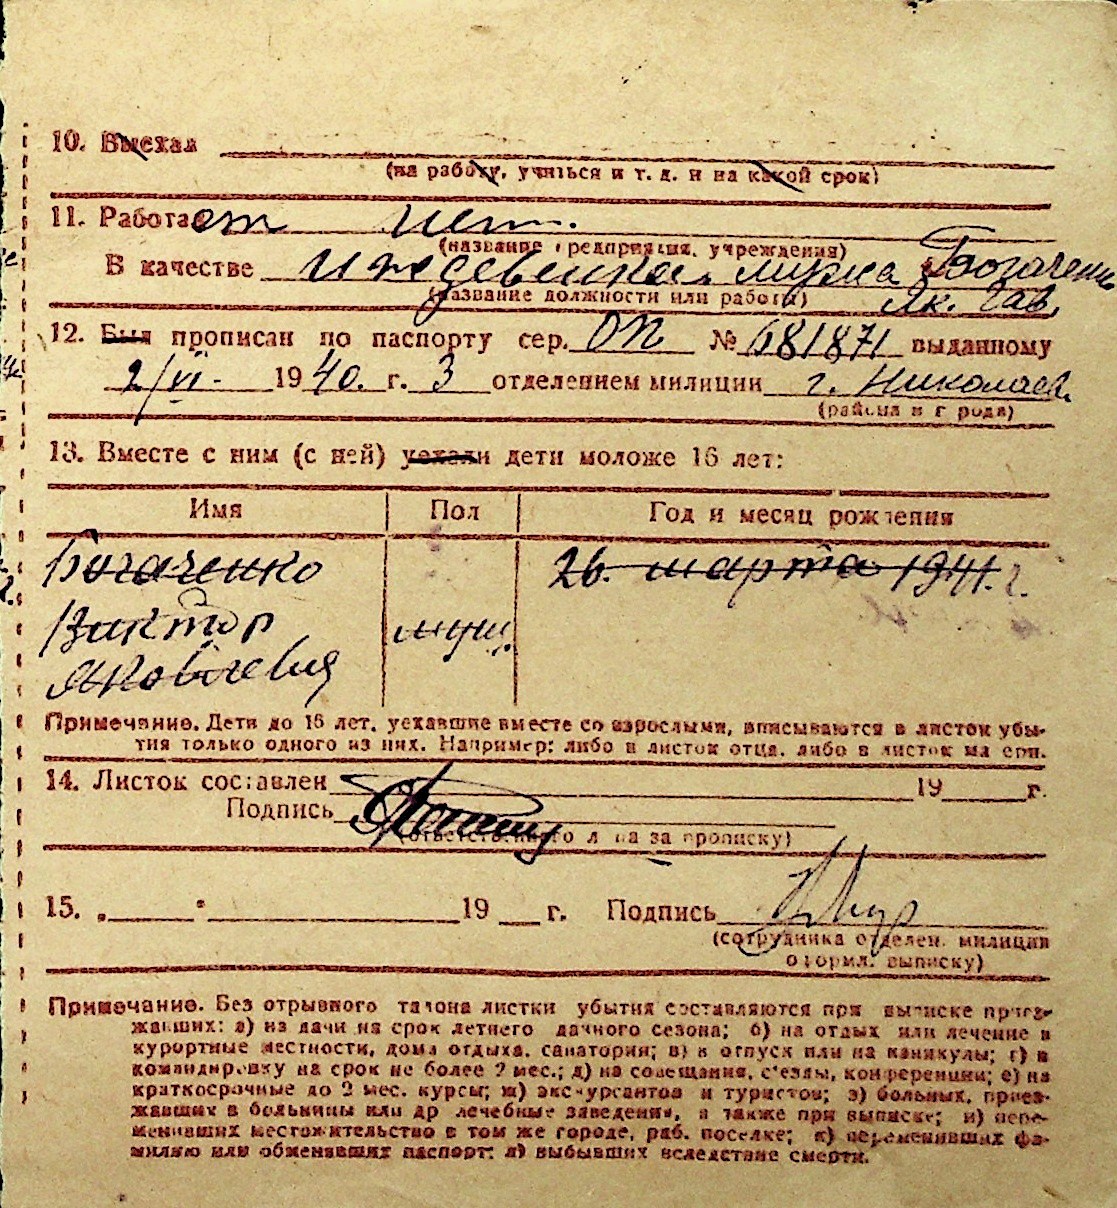 10. Выехал
(на работу, учиться и т. д. и на какой срок)
11. Работает нет.
(название предприятия, учреждения)
В качестве иждевенка мужа Богаченко
(название должности или работы) Як. Гав.
12. Был прописан по паспорту сер. ОП № 681871 выданному
2/VI- 1940. г. 3 отделением милиции г. Николаев.
(района и города)
13. Вместе с ним (с ней) уехали дети моложе 16 лет:
Имя Пол Год и месяц рождения
Богаченко 26. марта 1941. г.
Виктор муж.
Яковлевич
Примечание. Дети до 16 лет, уехавшие вместе со взрослыми, вписываются в листок убы-
тия только одного из них. Например: либо в листок отца, либо в листок матери.
14. Листок составлен 19 г.
Подпись
(ответственного лица за прописку)
15. „ " 19 г. Подпись
(сотрудника отделен. милиции
оформл. выписку)
Примечание. Без отрывного талона листки убытия составляются при выписке приез-
жавших: а) из дачи на срок летнего дачного сезона; б) на отдых или лечение в
курортные местности, дома отдыха, санатории; в) в отпуск или на каникулы; г) в
командировку на срок не более 2 мес.; д) на совещания, с'езды, конференции; е) на
краткосрочные до 2 мес. курсы; ж) экскурсантов и туристов; з) больных, приез-
жавших в больницы или др лечебные заведения, а также при выписке; и) пере-
менивших местожительство в том же городе, раб. поселке; к) переменивших фа-
милию или обменявших паспорт; л) выбывших вследствие смерти.